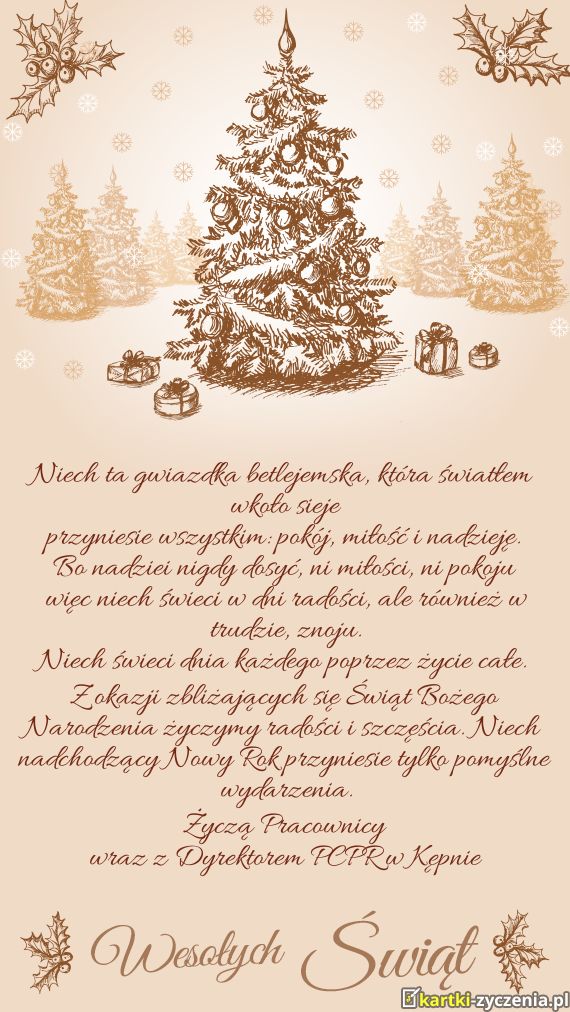 Niech ta gwiazdka betlejemska, która światłem
wkoło sieje
przyniesie wszystkim: pokój, miłość i nadzieję.
Bo nadziei nigdy dosyć, ni miłości, ni pokoju
więc niech świeci w dni radości, ale również w
trudzie, znoju.
Niech świeci dnia każdego poprzez życie całe.
Z okazji zbliżających się Świąt Bożego
Narodzenia życzymy radości i szczęścia. Niech
nadchodzący Nowy Rok przyniesie tylko pomyślne
wydarzenia.
Życzą Pracownicy
wraz z Dyrektorem PCPR w Kępnie
Wesołych Świąt
kartki-zyczenia.pl